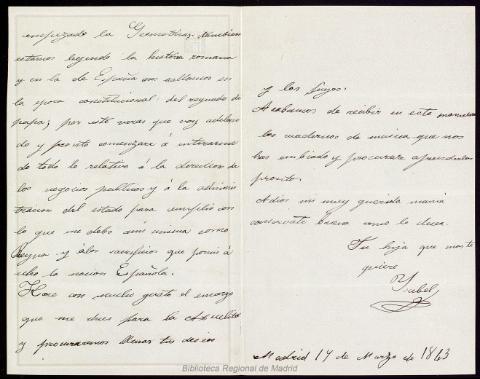 empezado la Geometria. Tambien
estamos leyendo la historia romana
y en la de España nos hallamos en
la epoca constitucional del reynado de
papa; por esto veras que voy adelan
do y pronto comenzare á enterarme
de todo lo relativo á la direccion de
los negocios publicos y á la adminis
tracion del estado para cumplir con
lo que me debo á mi misma como
Reyna y á los sacrificios que por mi á
echo la nacion Española.
Hare con mucho gusto el encargo
que me dices para la
y procuraremos llenar tus deseos
y los suyos.
Acabamos de recibir en este momento
los cuadernos de musica que nos
has embiado y procurare aprenderlos
pronto.
Adios mi muy querida mamá
conservate buena como lo desea
Tu hija que mucho te
quiere
Ysabel
Madrid 14 de Marzo de 1843
Biblioteca Regional de Madrid